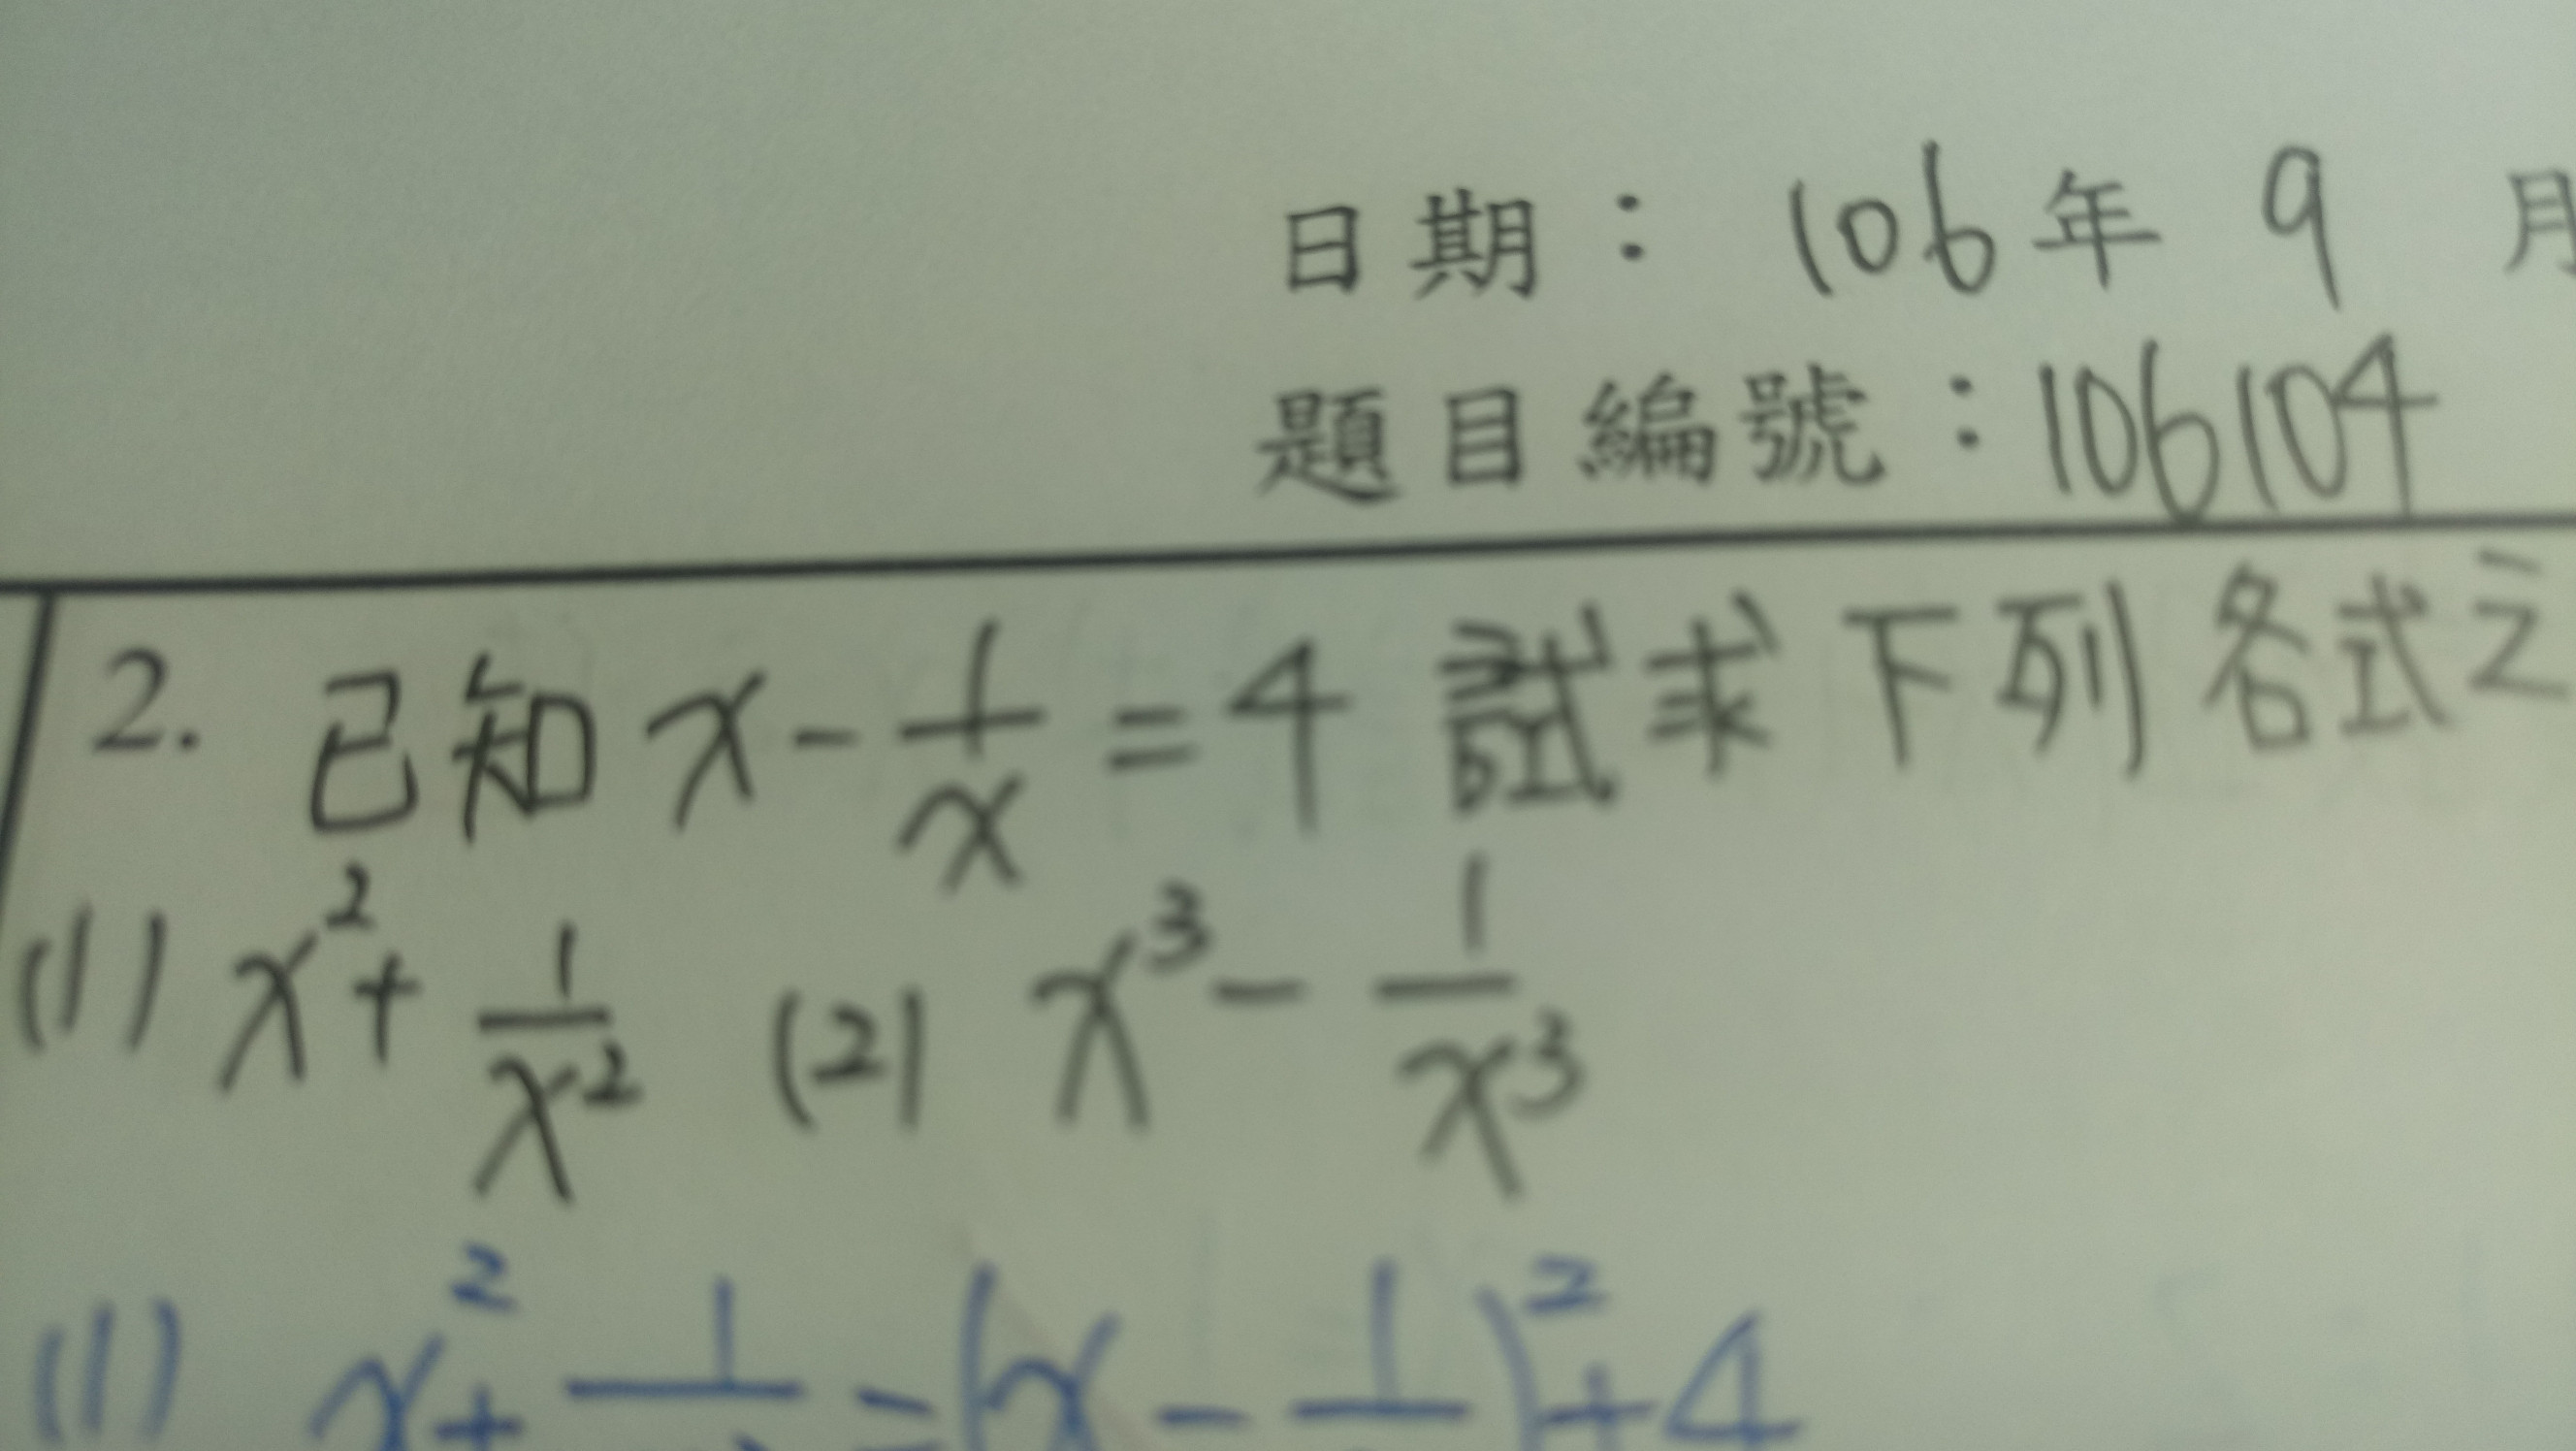 日期：106年 9 月
題目編號：106104
2. 已知 x - 1/x = 4 試求下列各式之
(1) x² + 1/x² (2) x³ - 1/x³
(1) x² + 1/ = (x - 1/ )² + 4